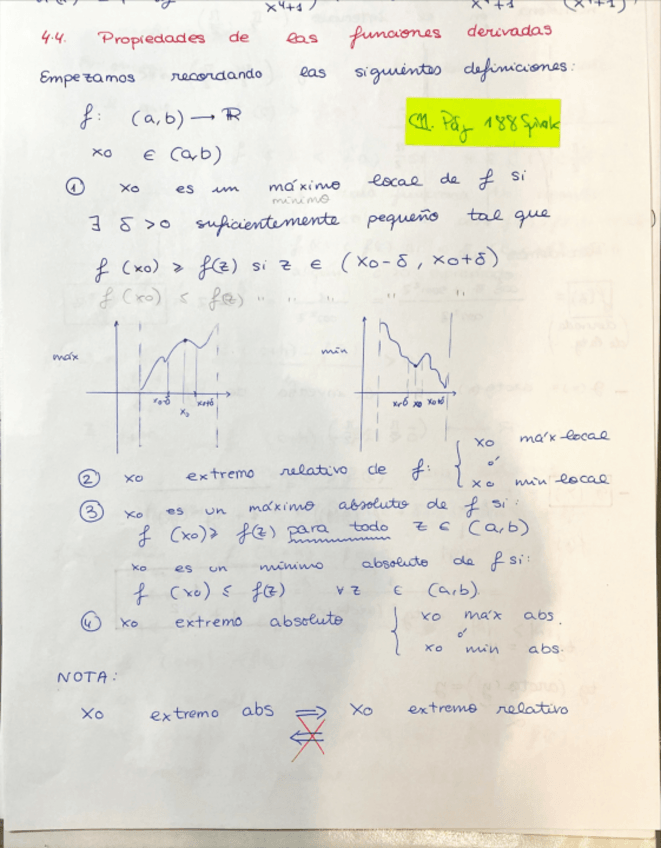 x⁴+1 )
x⁴+1
4.4. Propiedades de las funciones derivadas
Empezamos recordando las siguientes definiciones:
f: (a,b) → ℝ
Pág 188 Spivak
x0 ∈ (a,b)
① x0 es un máximo local de f si
mínimo
∃ δ > 0 suficientemente pequeño tal que
f (x0) ≥ f(z) si z ∈ (x0-δ, x0+δ)
f (x0) ≤ f(z) " " " " "
máx
min
x0-δ x0 x0+δ
x0-δ x0 x0+δ
② x0 extremo relativo de f: { x0 máx local
ó
x0 min local
③ x0 es un máximo absoluto de f si:
f (x0) ≥ f(z) para todo z ∈ (a,b)
x0 es un mínimo absoluto de f si:
f (x0) ≤ f(z) ∀z ∈ (a,b).
④ x0 extremo absoluto { x0 máx abs.
ó
x0 min abs.
NOTA:
x0 extremo abs ⇒ x0 extremo relativo
⇐